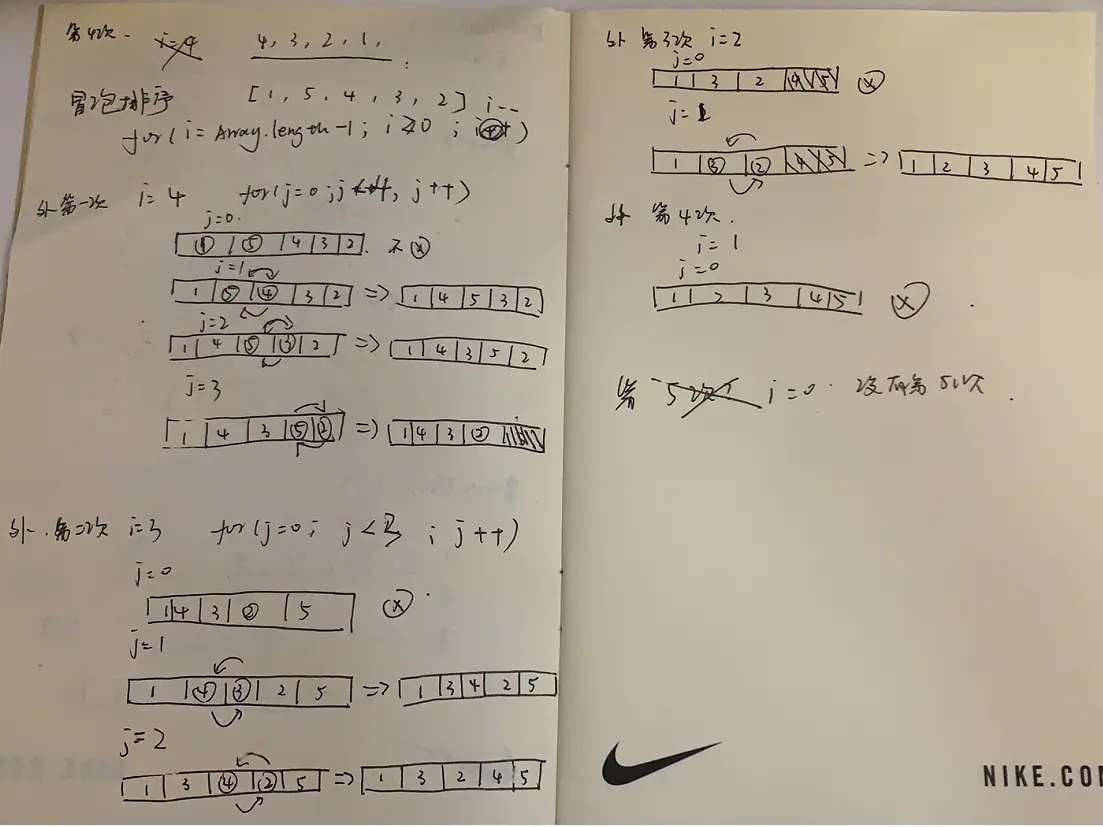 第4次. i=4 4, 3, 2, 1,
冒泡排序 [1, 5, 4, 3, 2] i--
for(i=Array.length-1; i≥0; i++)
外第一次 i=4 for(j=0; j<4, j++)
j=0
1 5 4 3 2 不 ×
j=1
1 5 4 3 2 => 1 4 5 3 2
j=2
1 4 5 3 2 => 1 4 3 5 2
j=3
1 4 3 5 2 => 1 4 3 2
外.第二次 i=3 for(j=0; j<3; j++)
j=0
1 4 3 2 5 ×
j=1
1 4 3 2 5 => 1 3 4 2 5
j=2
1 3 4 2 5 => 1 3 2 4 5
外 第3次 i=2
j=0
1 3 2 4 5 ×
j=1
1 3 2 4 5 => 1 2 3 4 5
外 第4次.
i=1
j=0
1 2 3 4 5 ×
第5次 i=0. 没有第5次.
NIKE.CO